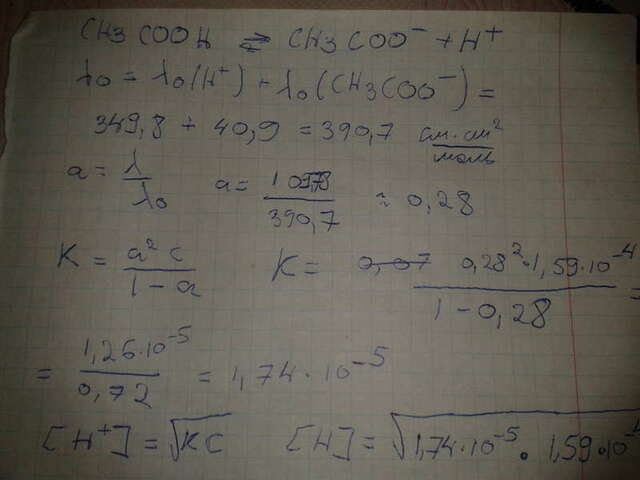 CH3COOH ⇌ CH3COO⁻ + H⁺
λ0 = λ0(H⁺) + λ0(CH3COO⁻) =
349,8 + 40,9 = 390,7 См·см²/моль
a = λ/λ0 a = /390,7 ≈ 0,28
K = a²c/1-a K = 0,07 0,28²·1,59·10⁻⁴/1-0,28 =
= 1,26·10⁻⁵/0,72 = 1,74·10⁻⁵
[H⁺] = √KC [H] = √1,74·10⁻⁵ · 1,59·10